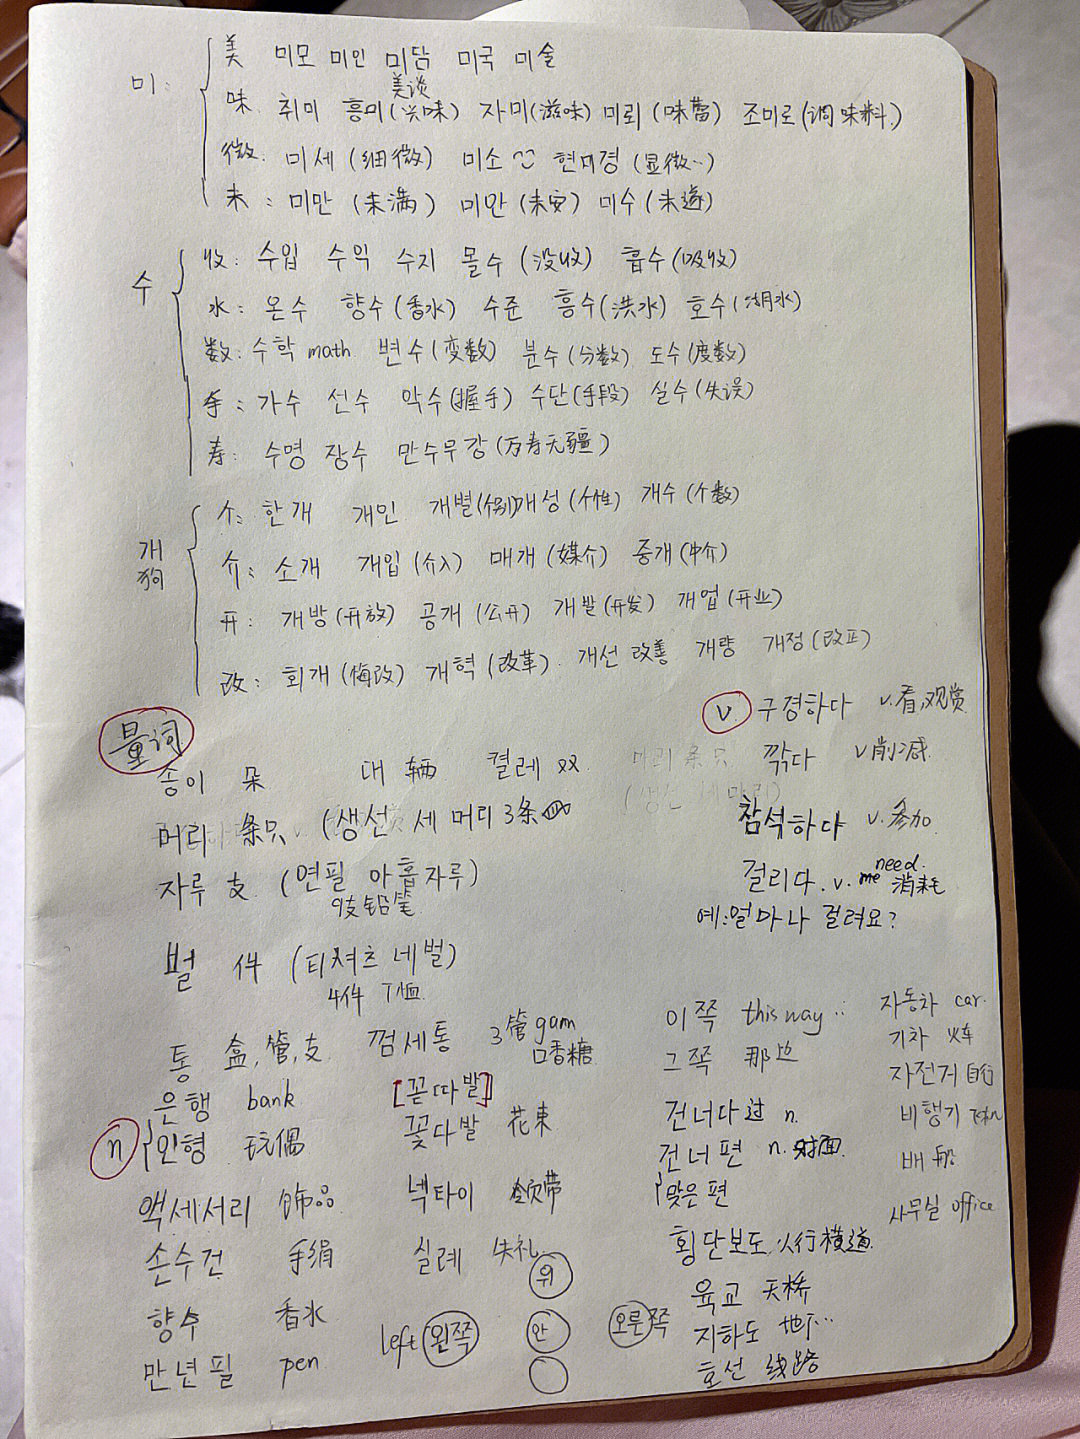 미: 美 미모 미인 미담 미국 미술
美谈
味. 취미 흥미(兴味) 자미(滋味) 미뢰(味蕾) 조미료(调味料)
微: 미세(细微) 미소 현미경(显微…)
未: 미만(未满) 미안(未安) 미수(未遂)
수 收: 수입 수익 수지 몰수(没收) 흡수(吸收)
水: 온수 향수(香水) 수준 홍수(洪水) 호수(湖水)
数: 수학 math 변수(变数) 분수(分数) 도수(度数)
手: 가수 선수 악수(握手) 수단(手段) 실수(失误)
寿: 수명 장수 만수무강(万寿无疆)
개 个: 한개 개인 개별(个别) 개성(个性) 개수(个数)
狗 介: 소개 개입(介入) 매개(媒介) 중개(中介)
开: 개방(开放) 공개(公开) 개발(开发) 개업(开业)
改: 회개(悔改) 개혁(改革). 개선 改善 개량 개정(改正)
量词
송이 朵 대 辆 켤레 双
머리 条只 (생선 세 머리 3条)
자루 支 (연필 아홉자루)
9支铅笔
벌 件 (티셔츠 네벌)
4件 T恤
통 盒,管,支 껌세통 3管 gum
口香糖
v. 구경하다 v.看,观赏
깎다 v削减
참석하다 v.参加
걸리다. v. need.
消耗
예:얼마나 걸려요?
은행 bank [꼳따발]
n 인형 玩偶 꽃다발 花束
액세서리 饰品 넥타이 领带
손수건 手绢 실례 失礼
향수 香水 left 왼쪽
만년필 pen
위
안
오른쪽
이쪽 this way
그쪽 那边
건너다 过 n.
건너편 n. 对面
맞은편
횡단보도 人行横道
육교 天桥
지하도 地下…
호선 线路
자동차 car.
기차 火车
자전거 自行
비행기
배 船
사무실 office